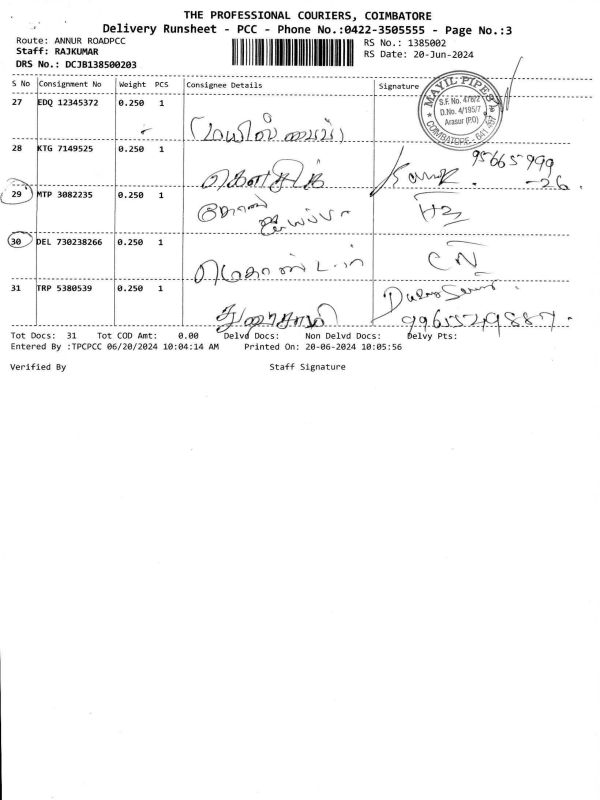 THE PROFESSIONAL COURIERS, COIMBATORE
Delivery Runsheet - PCC - Phone No.:0422-3505555 - Page No.:3
Route: ANNUR ROADPCC
RS No.: 1385002
Staff: RAJKUMAR
RS Date: 20-Jun-2024
DRS No.: DCJB138500203
S No Consignment No Weight PCS Consignee Details Signature
MAYIL PIPES
S.F. No. 476/2
D.No. 4/195/7
Arasur (P.O)
COIMBATORE - 641 407
27 EDQ 12345372 0.250 1
மயில் பைப்
28 KTG 7149525 0.250 1
கௌசிக்
95665 999
-26.
29 MTP 3082235 0.250 1
30 DEL 730238266 0.250 1
CN
31 TRP 5380539 0.250 1
9965549887.
Tot Docs: 31 Tot COD Amt: 0.00 Delvd Docs: Non Delvd Docs: Delvy Pts:
Entered By :TPCPCC 06/20/2024 10:04:14 AM Printed On: 20-06-2024 10:05:56
Verified By Staff Signature